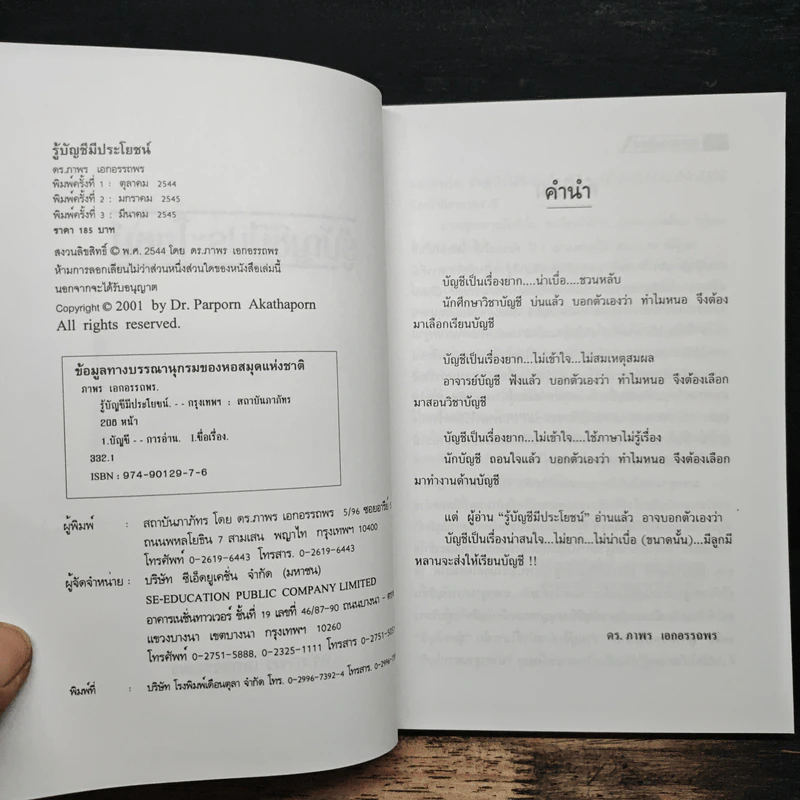 รู้บัญชีมีประโยชน์
ดร.ภาพร เอกอรรถพร
พิมพ์ครั้งที่ 1 : ตุลาคม 2544
พิมพ์ครั้งที่ 2 : มกราคม 2545
พิมพ์ครั้งที่ 3 : มีนาคม 2545
ราคา 185 บาท
สงวนลิขสิทธิ์ © พ.ศ. 2544 โดย ดร.ภาพร เอกอรรถพร
ห้ามการลอกเลียนไม่ว่าส่วนหนึ่งส่วนใดของหนังสือเล่มนี้
นอกจากจะได้รับอนุญาต
Copyright © 2001 by Dr. Parporn Akathaporn
All rights reserved.
ข้อมูลทางบรรณานุกรมของหอสมุดแห่งชาติ
ภาพร เอกอรรถพร.
รู้บัญชีมีประโยชน์. - - กรุงเทพฯ : สถาบันภาภัทร
208 หน้า
1. บัญชี - - การอ่าน. I.ชื่อเรื่อง.
332.1
ISBN : 974-90129-7-6
ผู้พิมพ์ : สถาบันภาภัทร โดย ดร.ภาพร เอกอรรถพร 5/96 ซอยอารีย์
ถนนพหลโยธิน 7 สามเสน พญาไท กรุงเทพฯ 10400
โทรศัพท์ 0-2619-6443 โทรสาร. 0-2619-6443
ผู้จัดจำหน่าย : บริษัท ซีเอ็ดยูเคชั่น จำกัด (มหาชน)
SE-EDUCATION PUBLIC COMPANY LIMITED
อาคารเนชั่นทาวเวอร์ ชั้นที่ 19 เลขที่ 46/87-90 ถนนบางนา -
แขวงบางนา เขตบางนา กรุงเทพฯ 10260
โทรศัพท์ 0-2751-5888, 0-2325-1111 โทรสาร
พิมพ์ที่ : บริษัท โรงพิมพ์เดือนตุลา จำกัด โทร. 0-2996-7392-4 โทรสาร.
คำนำ
บัญชีเป็นเรื่องยาก....น่าเบื่อ....ชวนหลับ
นักศึกษาวิชาบัญชี บ่นแล้ว บอกตัวเองว่า ทำไมหนอ จึงต้อง
มาเลือกเรียนบัญชี
บัญชีเป็นเรื่องยาก...ไม่เข้าใจ...ไม่สมเหตุสมผล
อาจารย์บัญชี ฟังแล้ว บอกตัวเองว่า ทำไมหนอ จึงต้องเลือก
มาสอนวิชาบัญชี
บัญชีเป็นเรื่องยาก...ไม่เข้าใจ....ใช้ภาษาไม่รู้เรื่อง
นักบัญชี ถอนใจแล้ว บอกตัวเองว่า ทำไมหนอ จึงต้องเลือก
มาทำงานด้านบัญชี
แต่ ผู้อ่าน “รู้บัญชีมีประโยชน์” อ่านแล้ว อาจบอกตัวเองว่า
บัญชีเป็นเรื่องน่าสนใจ...ไม่ยาก...ไม่น่าเบื่อ (ขนาดนั้น)...มีลูกมี
หลานจะส่งให้เรียนบัญชี !!
ดร. ภาพร เอกอรรถพร